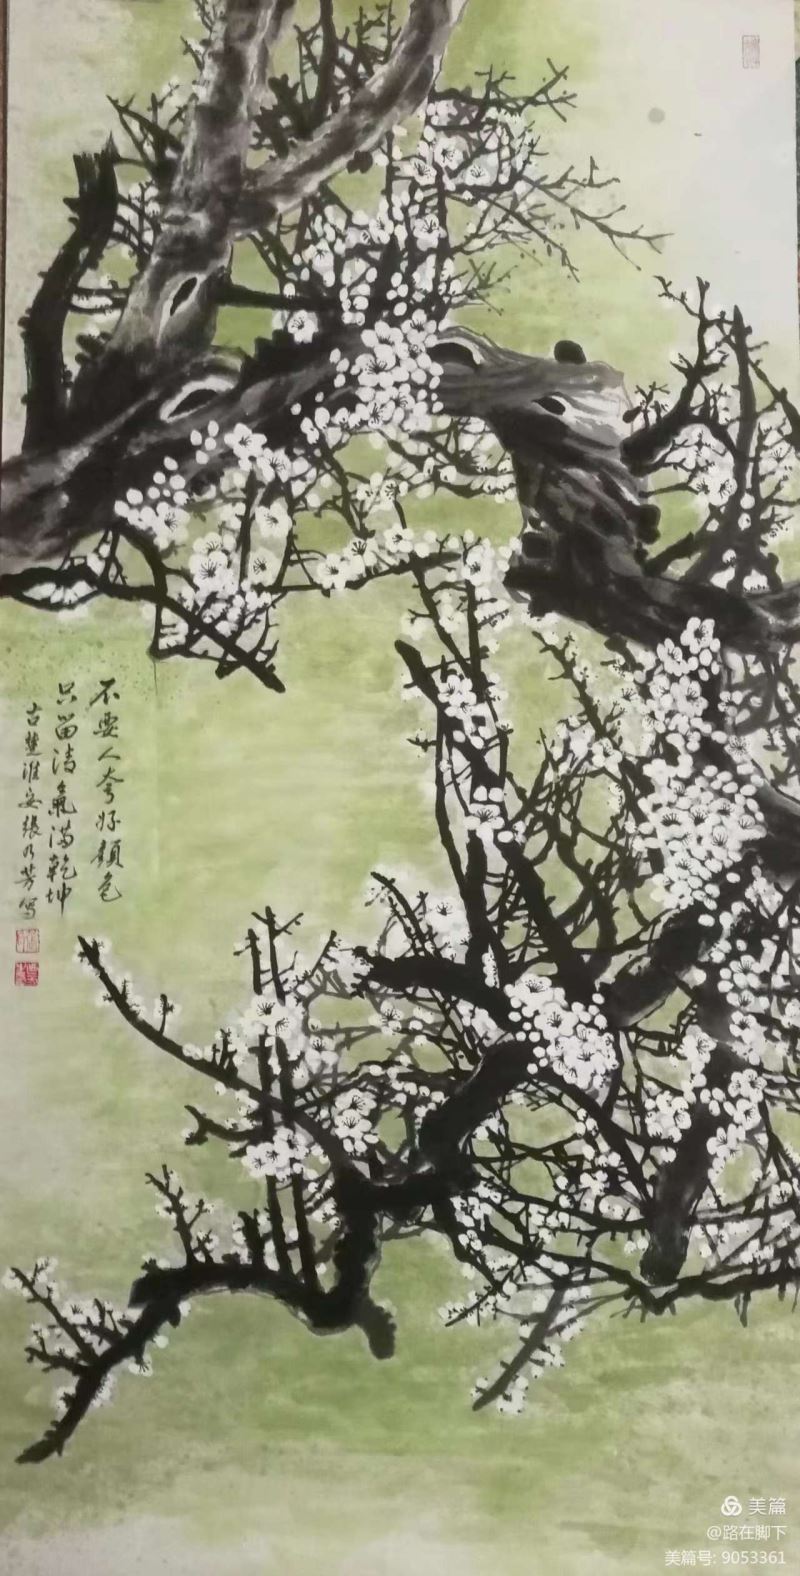 不要人夸好颜色
只留清氣满乾坤
古楚淮安張乃芳写
美篇
@路在脚下
美篇号: 9053361